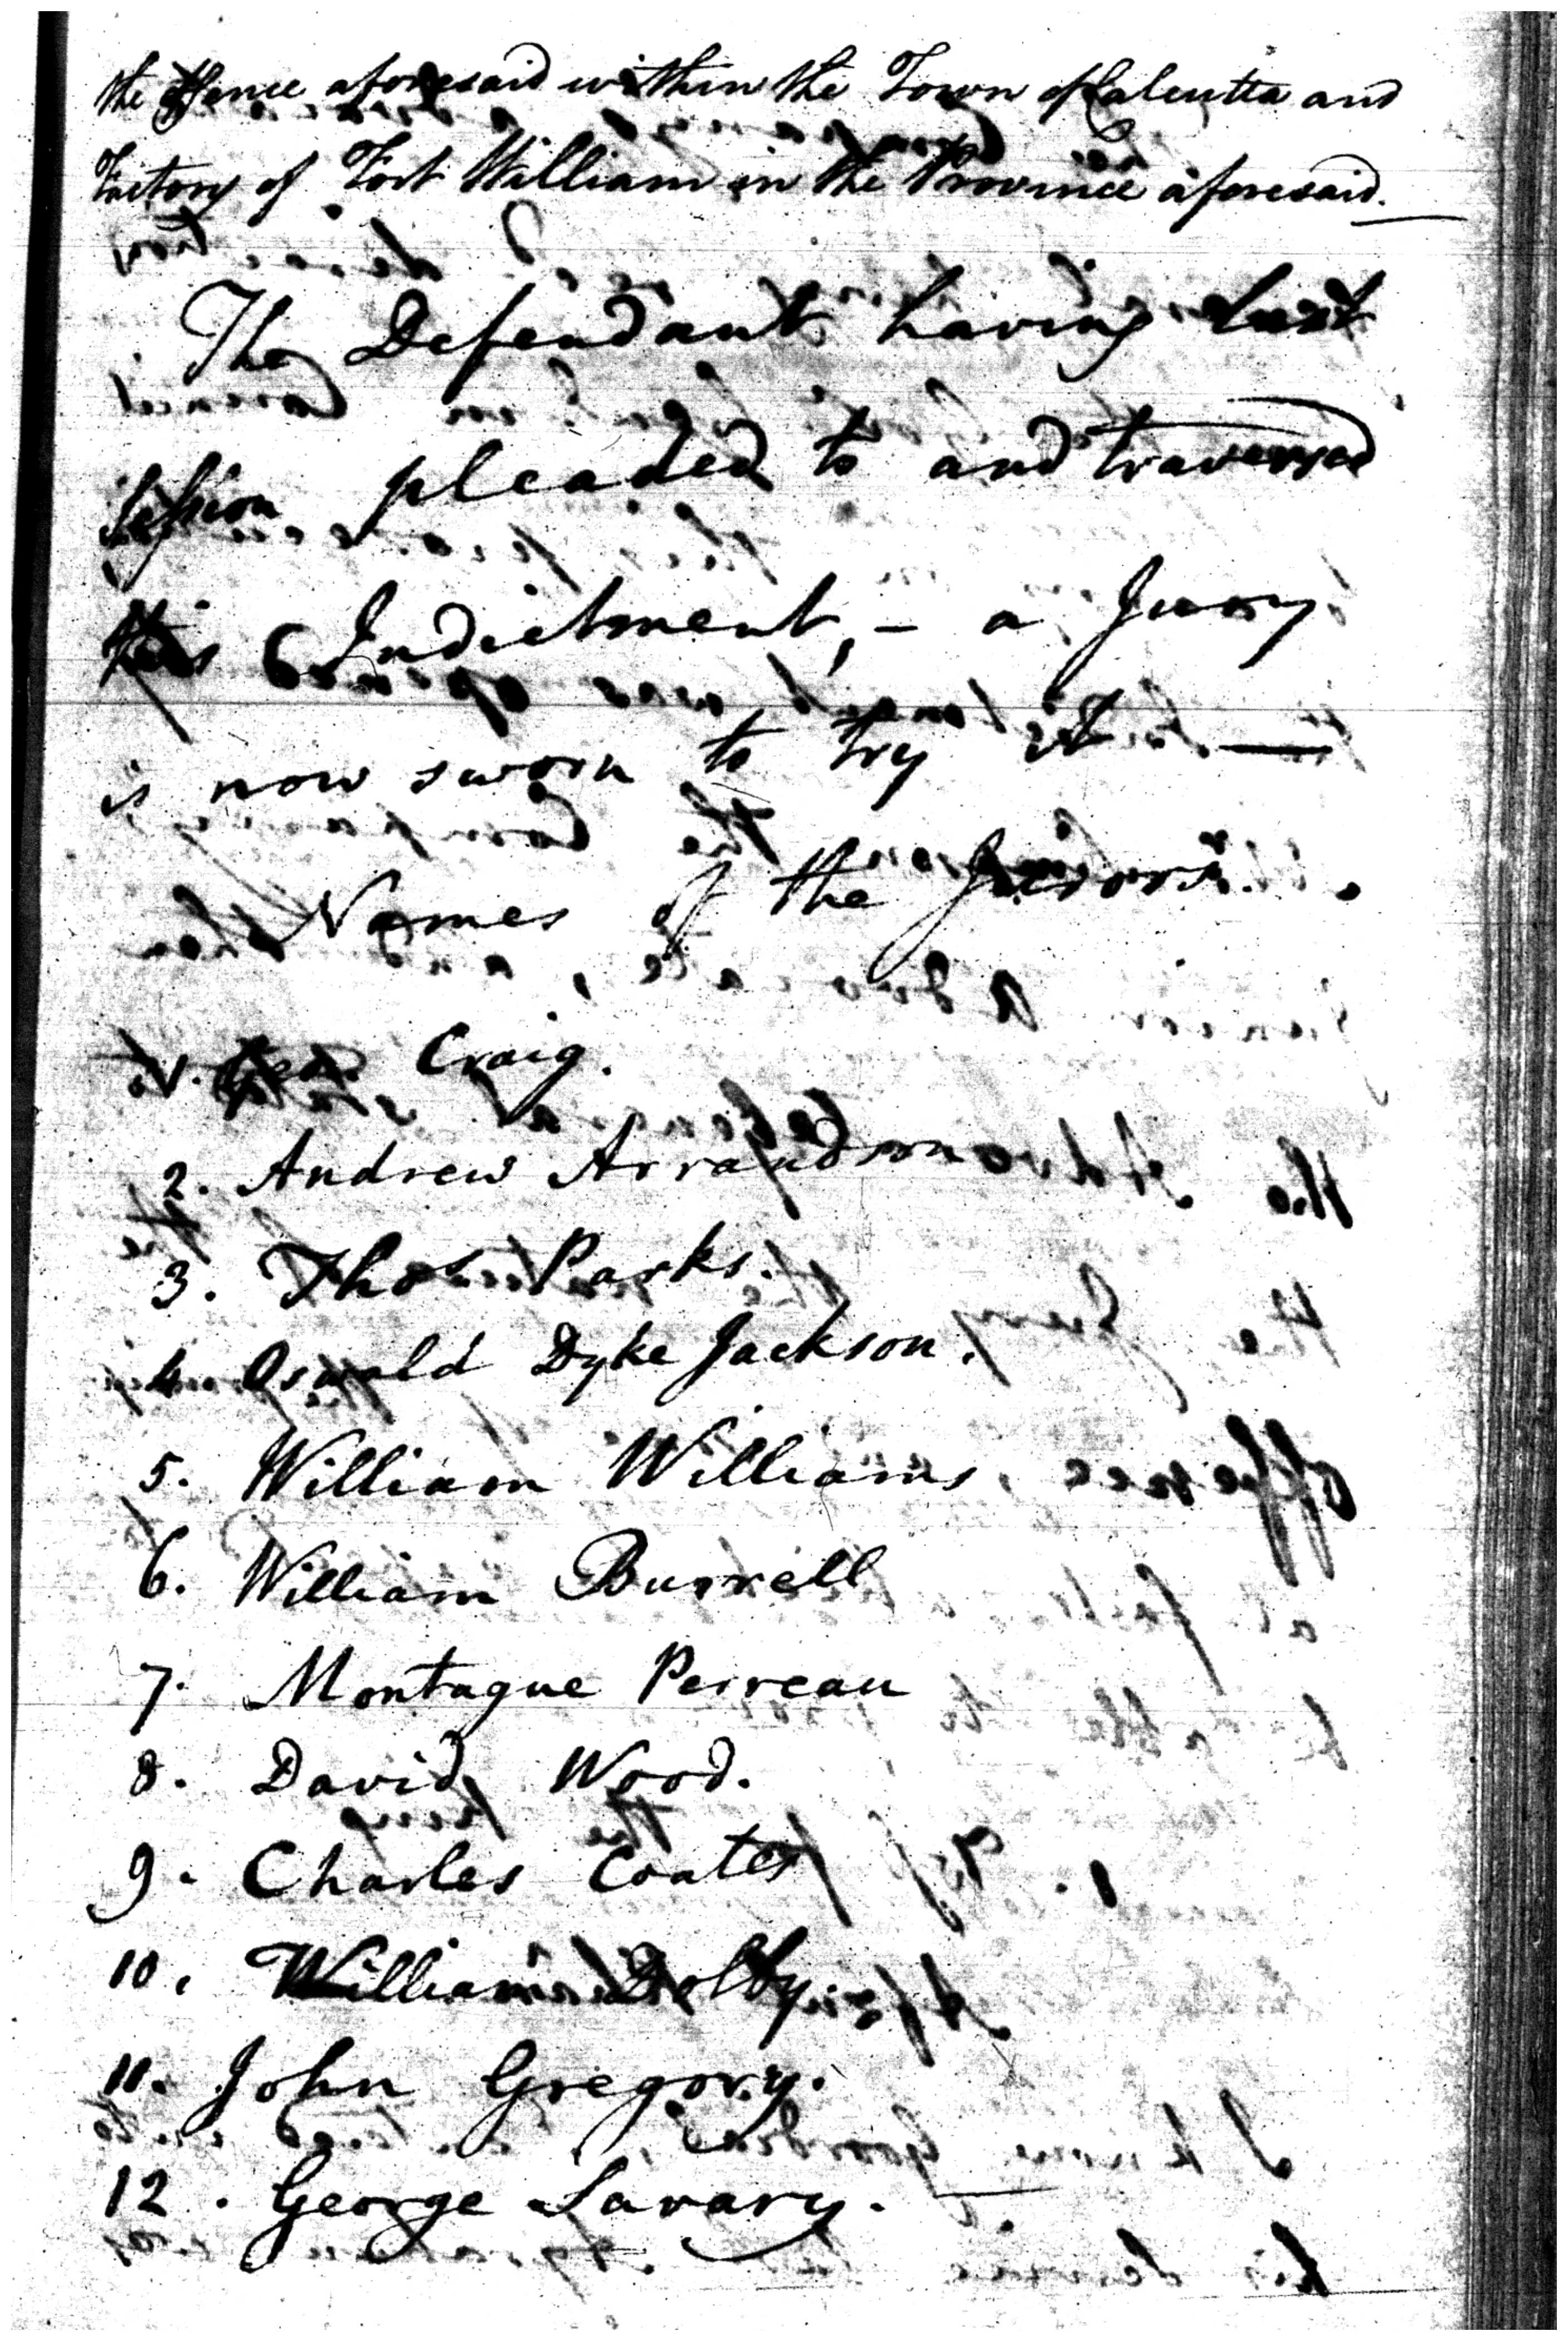 the offence aforesaid within the Town of Calcutta and
Factory of Fort William in the Province aforesaid.
The Defendant having last
Session pleaded to and traversed
this Indictment, – a Jury
is now sworn to try it —
Names of the Jurors.
1. Geo. Craig.
2. Andrew Arrandson
3. Thos Parks.
4 Oswald Dyke Jackson.
5. William Williams.
6. William Burrell
7. Montague Perreau
8. David Wood.
9. Charles Coates
10. William Dolby.
11. John Gregory.
12. George Lavary.